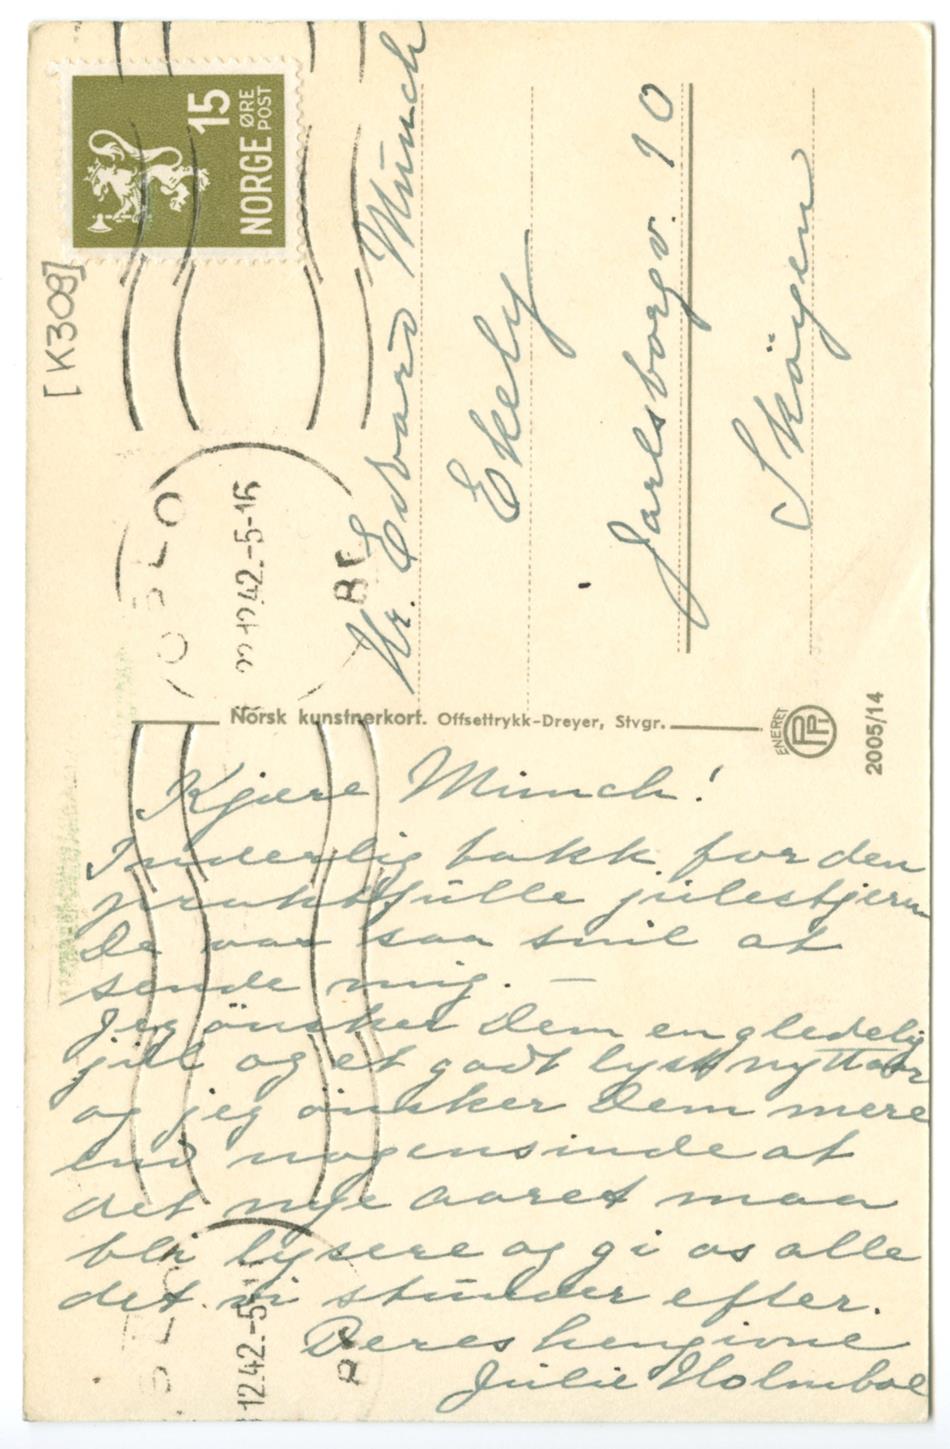 NORGE
15 ØRE
POST
[K308]
OSLO
22 12.42.-5-16
BR
Hr. Edvard Münch
Ekely
Jarlsborgv. 10
Sköyen
Norsk kunstnerkort. Offsettrykk-Dreyer, Stvgr.
ENERET
PPi
2005/14
Kjære Münch!
Inderlig takk for den
praktfülle jülestjerne
De var saa snil at
sende mig. –
Jeg önsker Dem en gledelig
jül og et godt lyst nyttaar
og jeg önsker Dem mere
end nogensinde at
det nye aaret maa
bli lysere og gi os alle
det vi stünder efter.
Deres hengivne
Jülie Holmboe
OSLO
12.42.-5-1